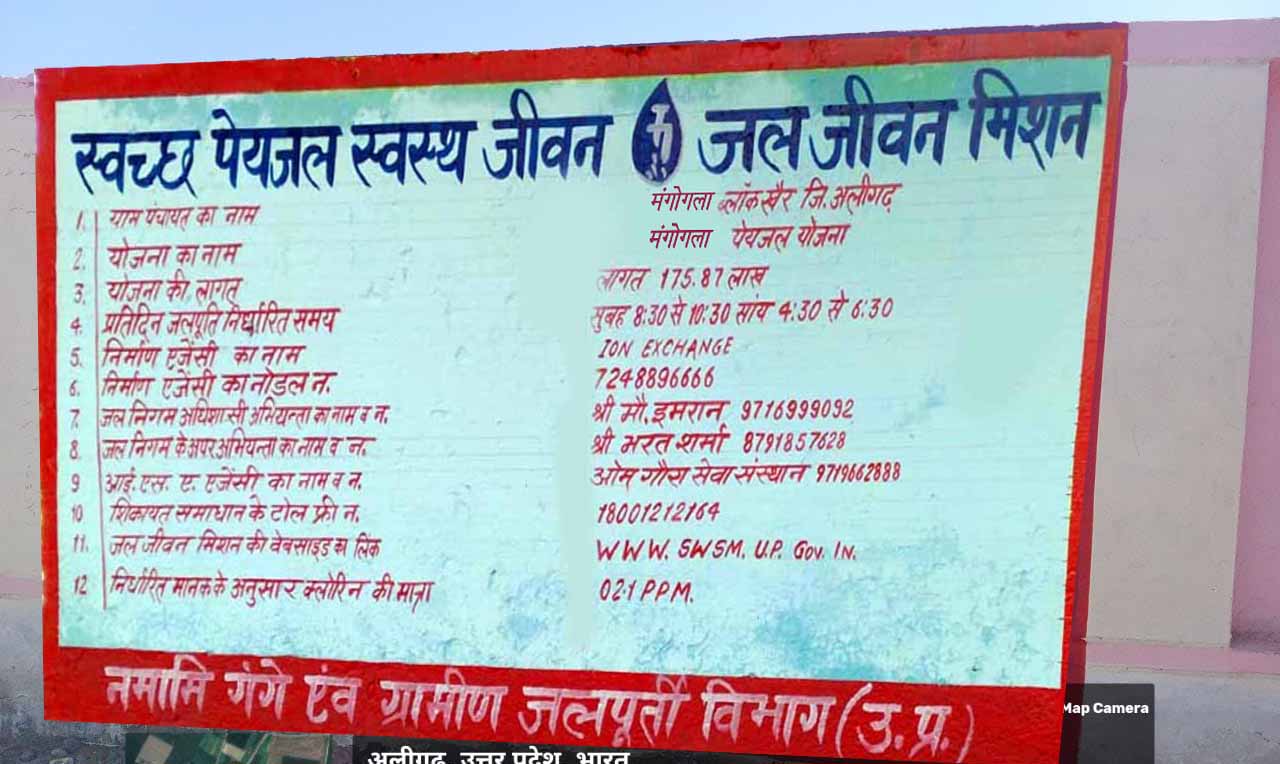 स्वच्छ पेयजल स्वस्थ जीवन जल जीवन मिशन
1. ग्राम पंचायत का नाम मंगोगला ब्लॉक खैर जि. अलीगढ़
2. योजना का नाम मंगोगला पेयजल योजना
3. योजना की लागत लागत 175.87 लाख
4. प्रतिदिन जलपूति निर्धारित समय सुबह 8:30 से 10:30 सांय 4:30 से 6:30
5. निर्माण एजेंसी का नाम ION EXCHANGE
6. निर्माण एजेंसी का नोडल न. 7248896666
7. जल निगम अधिशासी अभियन्ता का नाम व न. श्री मौ. इमरान 9716999092
8. जल निगम के अपर अभियन्ता का नाम व न. श्री भरत शर्मा 8791857628
9 आई. एस. ए. एजेंसी का नाम व न. ओम गौरा सेवा संस्थान 9719662888
10 शिकायत समाधान के टोल फ्री न. 18001212164
11. जल जीवन मिशन की वेबसाइड का लिंक WWW. SWSM. U.P. Gov. In.
12 निर्धारित मानक के अनुसार क्लोरिन की मात्रा 02.1 PPM.
नमामि गंगे एंव ग्रामीण जलपूर्ती विभाग (उ.प्र.)
Map Camera
अलीगढ़, उत्तर प्रदेश, भारत